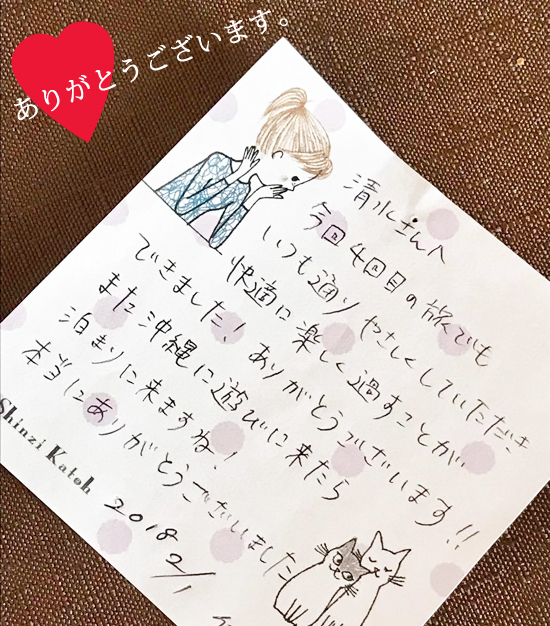 ありがとうございます。
清水さんへ
今回4回目の旅でも
いつも通りやさしくしていただき
快適に楽しく過すことが
できました！ありがとうございます!!
また沖縄に遊びに来たら
泊まりに来ますね！
本当にありがとうございました
2018
2/1
Shinzi Katoh